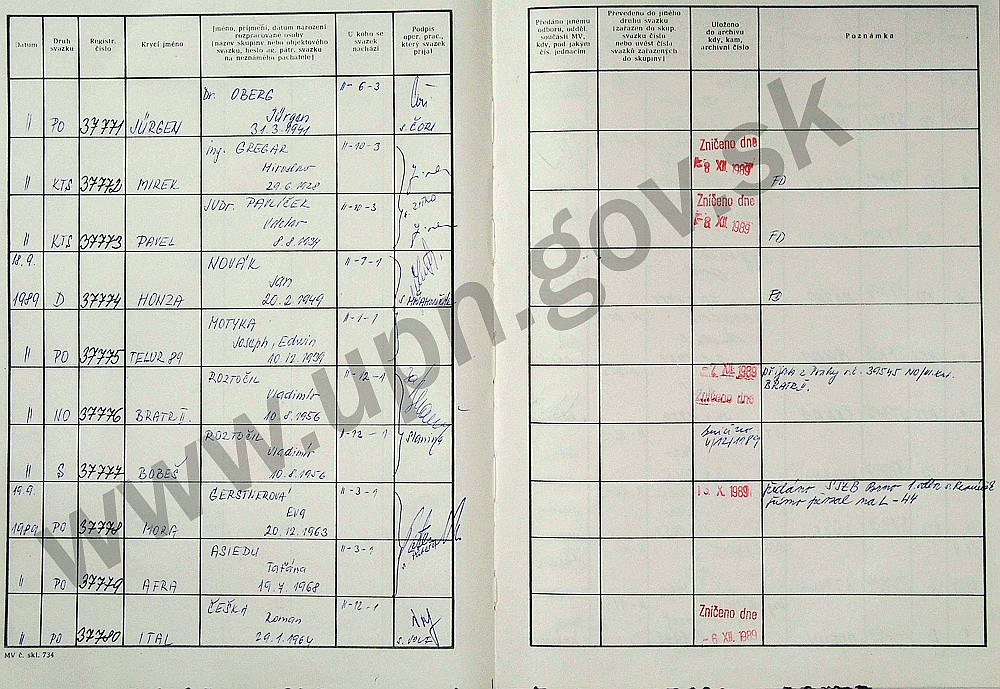 Datum
Druh svazku
Registr. číslo
Krycí jméno
Jméno, příjmení, datum narození
rozpracované osoby
(název skupiny nebo objektového
svazku, heslo ag. pátr. svazku
na neznámého pachatele)
U koho se
svazek
nachází
Podpis
oper. prac.,
který svazek
přijal
Předáno jinému
odboru, odděl.
součásti MV,
kdy, pod jakým
čís. jednacím
Převedeno do jiného
druhu svazku
(zařazen do skup.
svazku číslo
nebo uvést číslo
svazků zařazených
do skupiny)
Uloženo
do archivu
kdy, kam,
archivní číslo
Poznámka
Dr. OBERG II-6-3
Jürgen
II PO 37771 JÜRGEN 31.3.1941 s. ČORI
ing. GREGAR II-10-3 Zničeno dne
Miroslav 8 XII. 1989
II KTS 37772 MIREK 29.6.1928 FO
JUDr. PAVLÍČEK II-10-3 Zničeno dne
Václav 8 XII. 1989
II KTS 37773 PAVEL 8.8.1934 FO
18.9. NOVÁK II-7-1
Jan
1989 D 37774 HONZA 20.2.1949 FO
MOTYKA II-1-1
Joseph, Edwin
II PO 37775 TELUR 89 10.12.1939
ROZTOČIL II-12-1 XII. 1989 39545
Vladimír Zničeno dne BRATR II.
II NO 37776 BRATR II. 10.8.1956
ROZTOČIL II-12-1
Vladimír 4/12/1989
II S 37777 BOBEŠ 10.8.1956
19.9. GERSTNEROVÁ II-3-1 X. 1989 předáno SStB Brno 1. odbor
Eva na L-44
1989 PO 37778 HORA 20.12.1963
ASIEDU II-3-1
Taťána
II PO 37779 AFRA 19.7.1968
ČEŠKA II-12-1 Zničeno dne
Roman -6 XII. 1989
II PO 37780 ITAL 29.1.1964
MV č. skl. 734
www.upn.gov.sk